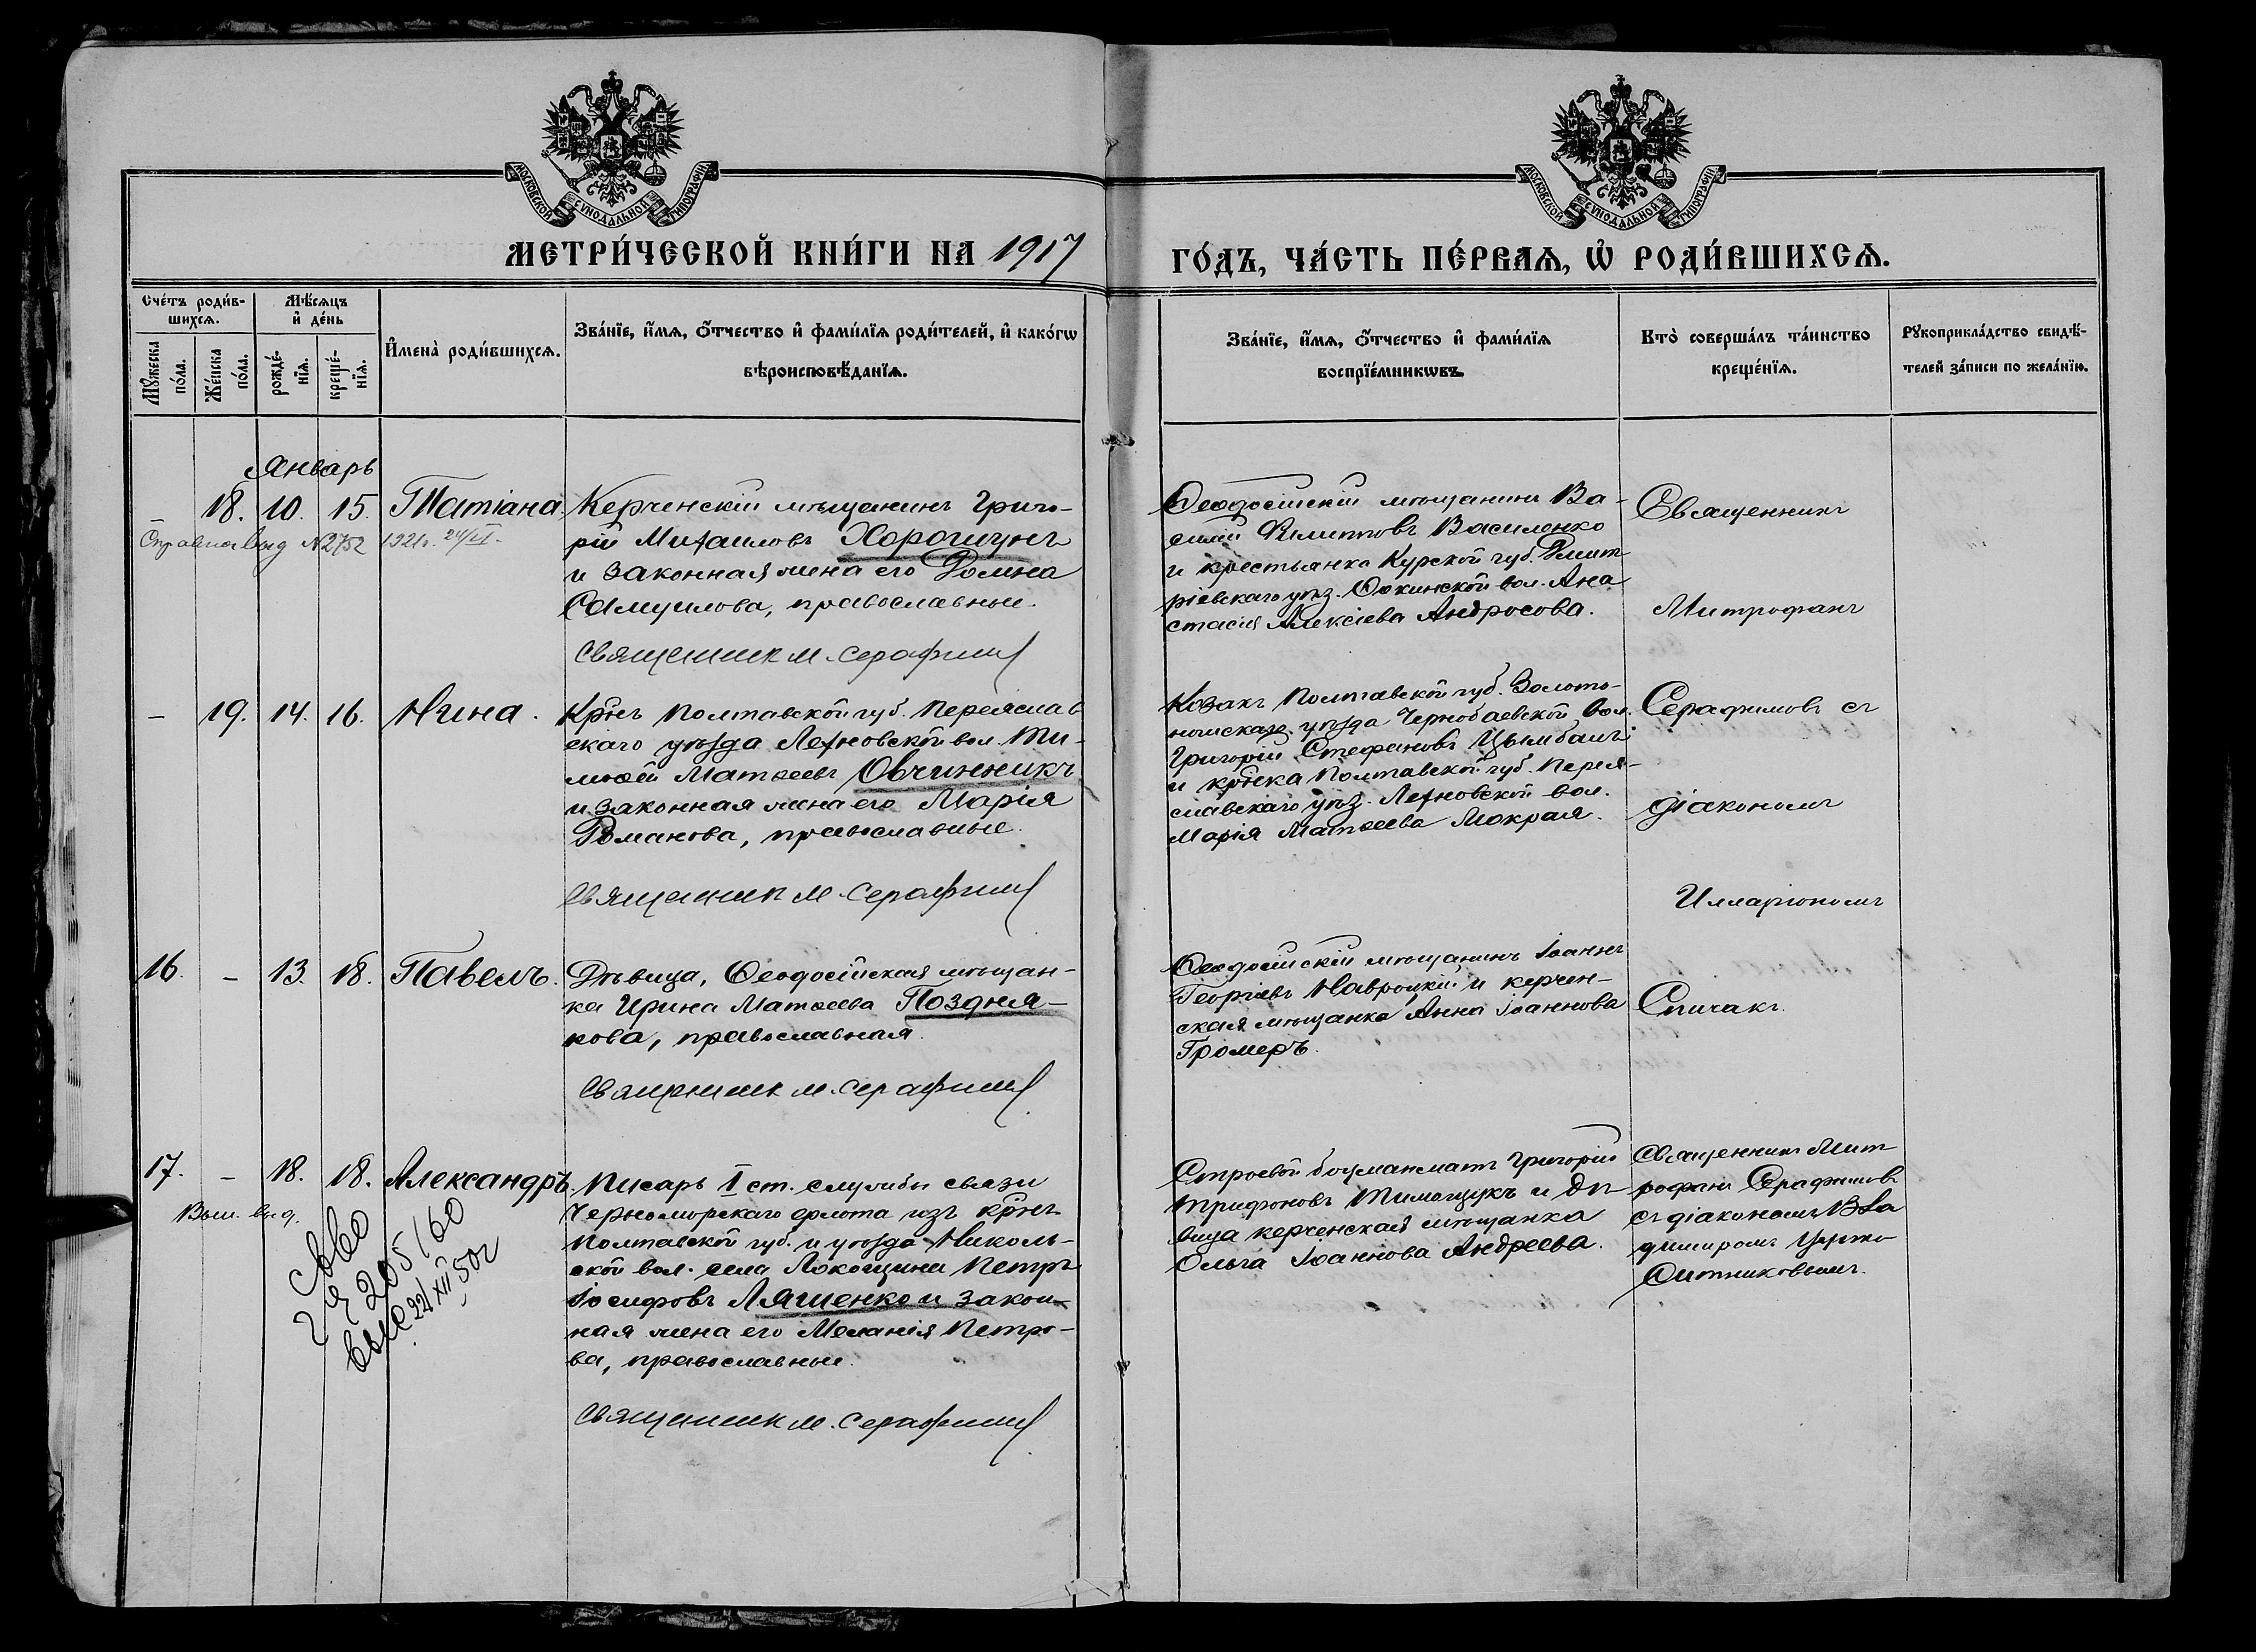 МОСКОВСКОЙ СѴНОДАЛЬНОЙ ТИПОГРАФІИ
МОСКОВСКОЙ СѴНОДАЛЬНОЙ ТИПОГРАФІИ
МЕТРИ́ЧЕСКОЙ КНИ́ГИ НА 1917
ГО́ДЪ, ЧА́СТЬ ПЕ́РВАѦ, Ѡ҆ РОДИ́ВШИХСѦ.
Сче́тъ роди́в-
шихсѧ.
Мꙋ́жеска
по́ла.
Же́нска
по́ла.
Мѣ́сѧцъ
и҆ де́нь
рожде́-
нїѧ.
креще́-
нїѧ.
И҆мена̀ роди́вшихсѧ.
Зва́нїе, и҆́мѧ, ѻ҆́тчество и҆ фами́лїѧ роди́телей, и҆ како́гѡ
вѣроисповѣ́данїѧ.
Зва́нїе, и҆́мѧ, ѻ҆́тчество и҆ фами́лїѧ
воспрїе́мникѡвъ.
Кто̀ соверша́лъ та́инство
креще́нїѧ.
Рꙋкоприкла́дство свидѣ́-
телей за́писи по жела́нїю.
Январь
18. 10. 15. Татіана.
Справка выд №2752 1921г.
Керченскій мѣщанинъ Григо-
рій Михаиловъ Хорошунъ
и законная жена его Домна
Самуилова, православные.
Священник м. Серафим
Ѳеодосійскій мѣщанинъ Ва-
силій Филипповъ Василенко
и крестьянка Курской губ. Дмит
ріевскаго уѣз. Ана
стасія Алексіева Андросова.
Священникъ
Митрофанъ
– 19. 14. 16. Нина.
Крнъ Полтавской губ. Переяслав
скаго уѣзда Лехновской вол. Ти-
моѳей Матѳеевъ Овчинникъ
и законная жена его Марія
Романова, православные.
Священник м. Серафим
Козакъ Полтавской губ. Золото-
ношскаго уѣзда Чернобаевской вол.
Григорій Стефановъ Цымбалъ
и крнка Полтавской губ. Перея-
славскаго уѣз. Лехновской вол.
Марія Матѳеева Мокрая.
Серафимовъ съ
діакономъ
Илларіономъ
16. – 13. 18. Павелъ.
Дѣвица, Ѳеодосійская мѣщан-
ка Ирина Матѳеева Поздня-
кова, православная.
Священник м. Серафим
Ѳеодосійскій мѣщанинъ Іоаннъ
Георгіевъ Навроцкій и керчен-
ская мѣщанка Анна Іоаннова
Громеръ.
Спичакъ.
17. – 18. 18. Александръ.
Вып. выд.
Сввво
205160
50г
Писарь I ст. службы связи
Черноморскаго флота изъ крнъ
Полтавской губ. и уѣзда Николь-
ской вол. села Локощини Петръ
Іосифовъ Ляшенко и закон-
ная жена его Меланія Петро-
ва, православные.
Священник м. Серафим
Строевой боцманматъ Григорій
Трифоновъ Тимощукъ и дѣ-
вица керченская мѣщанка
Ольга Іоаннова Андреева.
Священникъ Мит
рофанъ Серафимовъ
съ діакономъ Вла
диміромъ
Ситниковымъ.